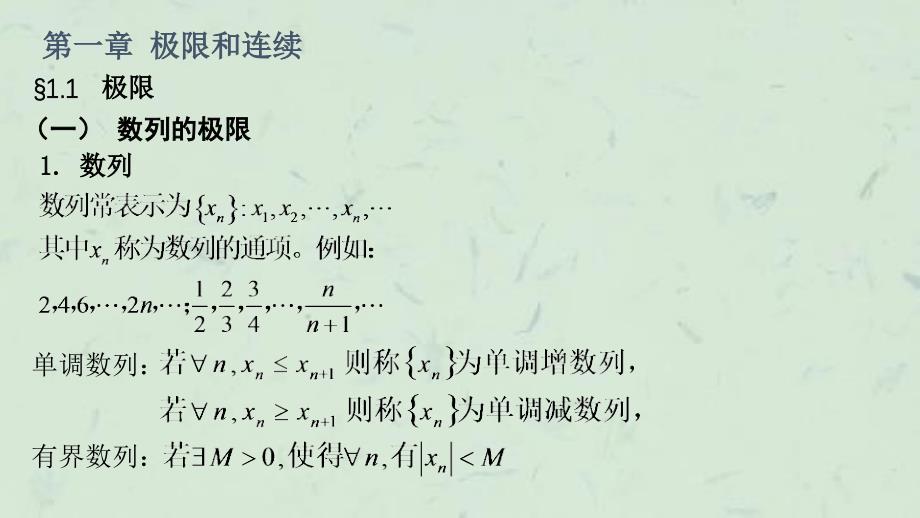 第一章 极限和连续
§1.1 极限
（一） 数列的极限
1. 数列
数列常表示为{xₙ}:x₁,x₂,⋯,xₙ,⋯
其中xₙ称为数列的通项。例如：
2,4,6,⋯,2n,⋯;1/2,2/3,3/4,⋯,n/(n+1),⋯
单调数列：若∀n,xₙ≤xₙ₊₁则称{xₙ}为单调增数列，
若∀n,xₙ≥xₙ₊₁则称{xₙ}为单调减数列，
有界数列：若∃M>0,使得∀n,有|xₙ|<M